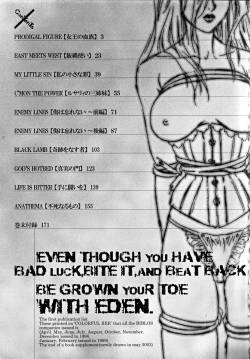 PRODIGAL FIGURE【女王の血族】3
EAST MEETS WEST【 】23
MY LITTLE SIN【私の小さな罪】39
C'MON THE POWER【ルサリィの三姉妹】55
ENEMY LINES【傷は忘れない～前編】71
ENEMY LINES【傷は忘れない～後編】87
BLACK LAMB【奇跡をなす者】103
GOD'S HOTBED【真実の門】123
LIFE IS BITTER【手に闘いを】139
ANATHEMA【不死なるもの】155
巻末付録 171
EVEN THOUGH YOU HAVE
BAD LUCK, BITE IT, AND BEAT BACK
BE GROWN YOUR TOE
WITH EDEN.
The first publication list
These printed on 'COLORFUL BEE' that all the BIBLOS
companies issued it.
(April, May, June, July, August, October, November,
December issued in 1998,
January, February issued in 1999)
The end of a book supplement(newly drawn in may 2002)